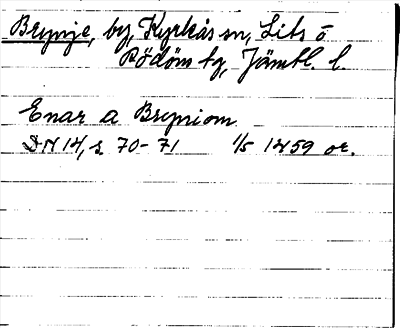 Brynje, by, Kyrkås sn, Lits o
Rödöns tg, Jämtl. l.
Enar a Bryniom
DN 14, s. 70-71 1/5 1459 or.